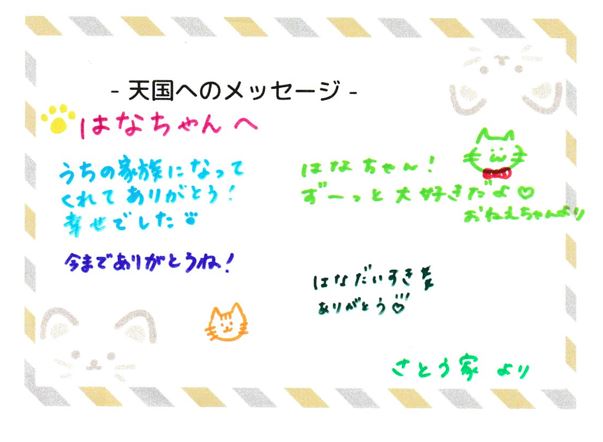 - 天国へのメッセージ -
はなちゃんへ
うちの家族になって
くれてありがとう!
幸せでした
今までありがとうね!
はなちゃん!
ずーっと大好きだよ♡
おねえちゃんより
はなだいすき
ありがとう♡
さとう家より